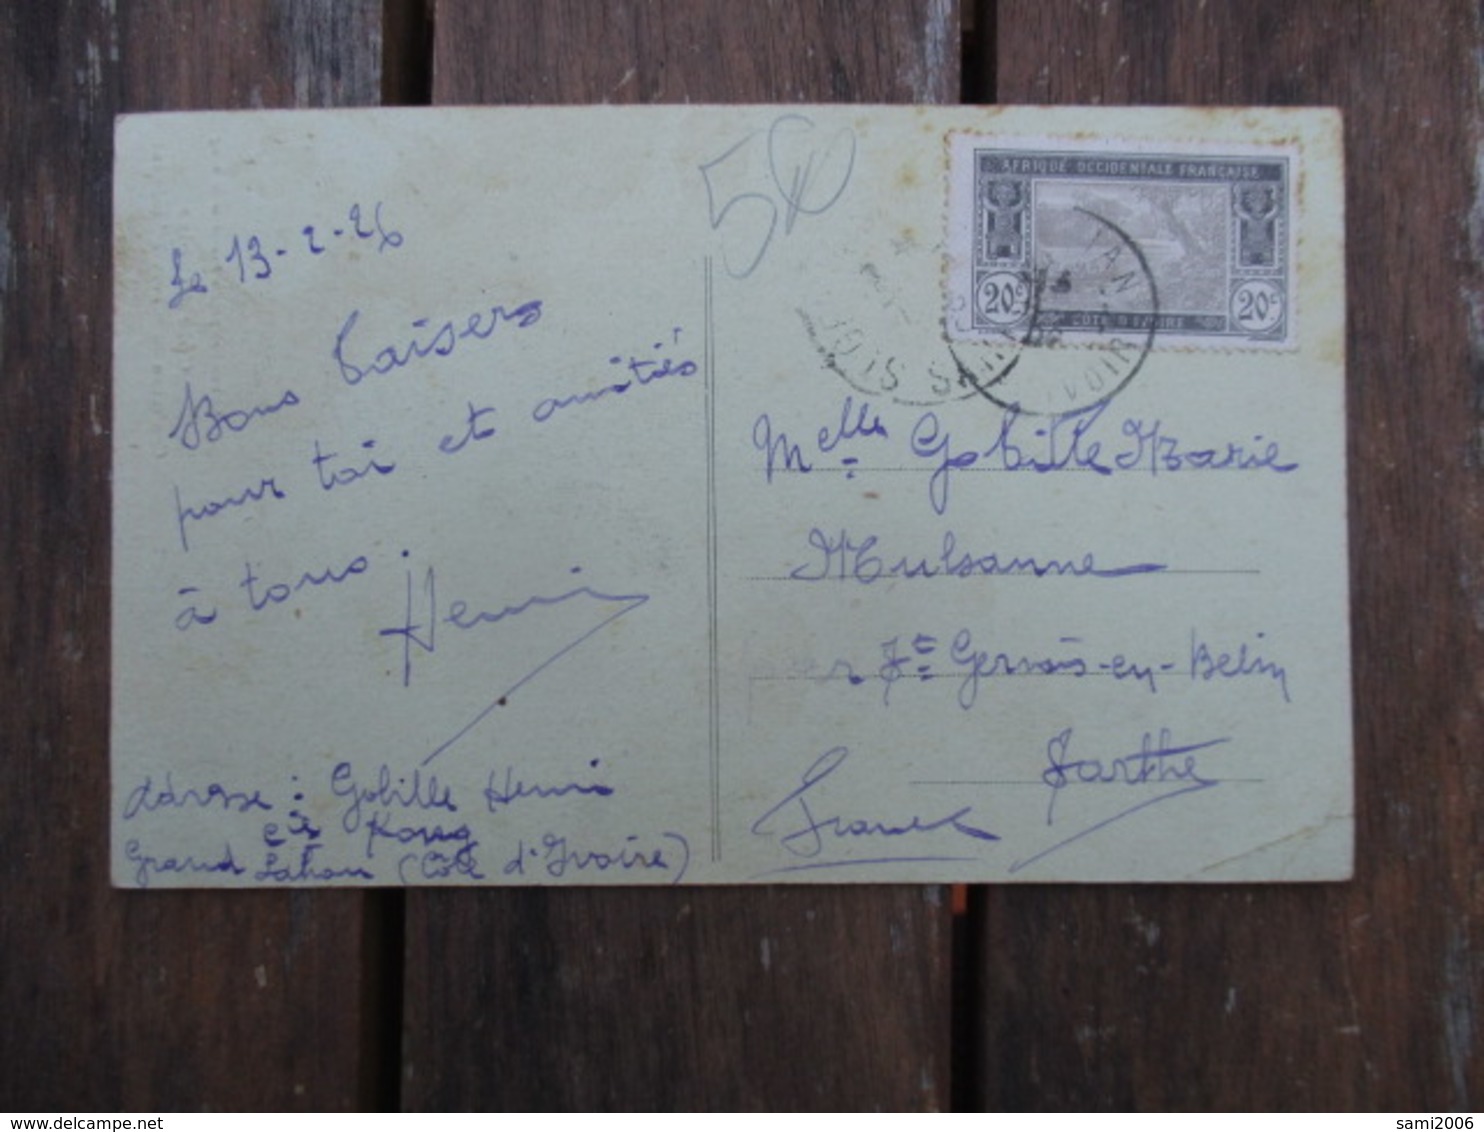 5€
AFRIQUE OCCIDENTALE FRANÇAISE
20c 20c
CÔTE D'IVOIRE
Le 13-2-26
Bons baisers
pour toi et amitiés
à tous.
Henri
adresse : Gobille Henri
Cie Kong
Grand Lahou (Côte d'Ivoire)
Melle Gobille Marie
Mulsanne
par St Gervais-en-Belin
Sarthe
France
sami2006